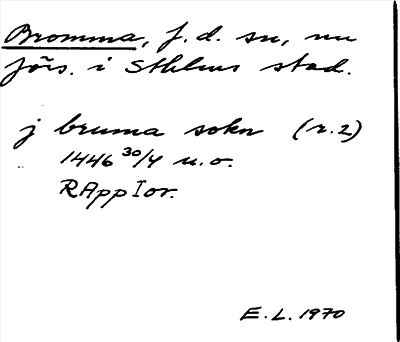 Bromma, f. d. sn, nu
förs. i Sthlms stad.
j bruma sokn (r. 2)
1446 30/4 u. o.
RApp Ior.
E. L. 1970